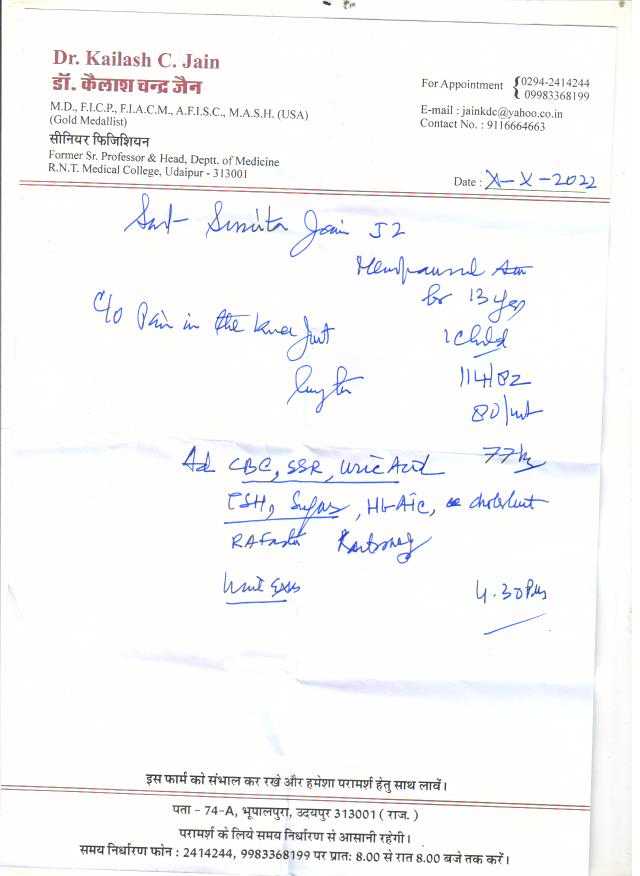 Dr. Kailash C. Jain
डॉ. कैलाश चन्द्र जैन
M.D., F.I.C.P., F.I.A.C.M., A.F.I.S.C., M.A.S.H. (USA)
(Gold Medallist)
सीनियर फिजिशियन
Former Sr. Professor & Head, Deptt. of Medicine
R.N.T. Medical College, Udaipur - 313001
For Appointment { 0294-2414244
09983368199
E-mail : jainkdc@yahoo.co.in
Contact No. : 9116664663
Date : X-X-2022
Smt Jain 52
Menopausal
for 13 yrs
C/o Pain in the knee Joint
1 child
114/82
80/mt
77 kg
Ad CBC, SSR, Uric Acid
TSH, Sugar, HbA1C,
RA Factor
Urine Exam
4.30 Pm
इस फार्म को संभाल कर रखे और हमेशा परामर्श हेतु साथ लावें।
पता - 74-A, भूपालपुरा, उदयपुर 313001 ( राज. )
परामर्श के लिये समय निर्धारण से आसानी रहेगी।
समय निर्धारण फोन : 2414244, 9983368199 पर प्रात: 8.00 से रात 8.00 बजे तक करें।